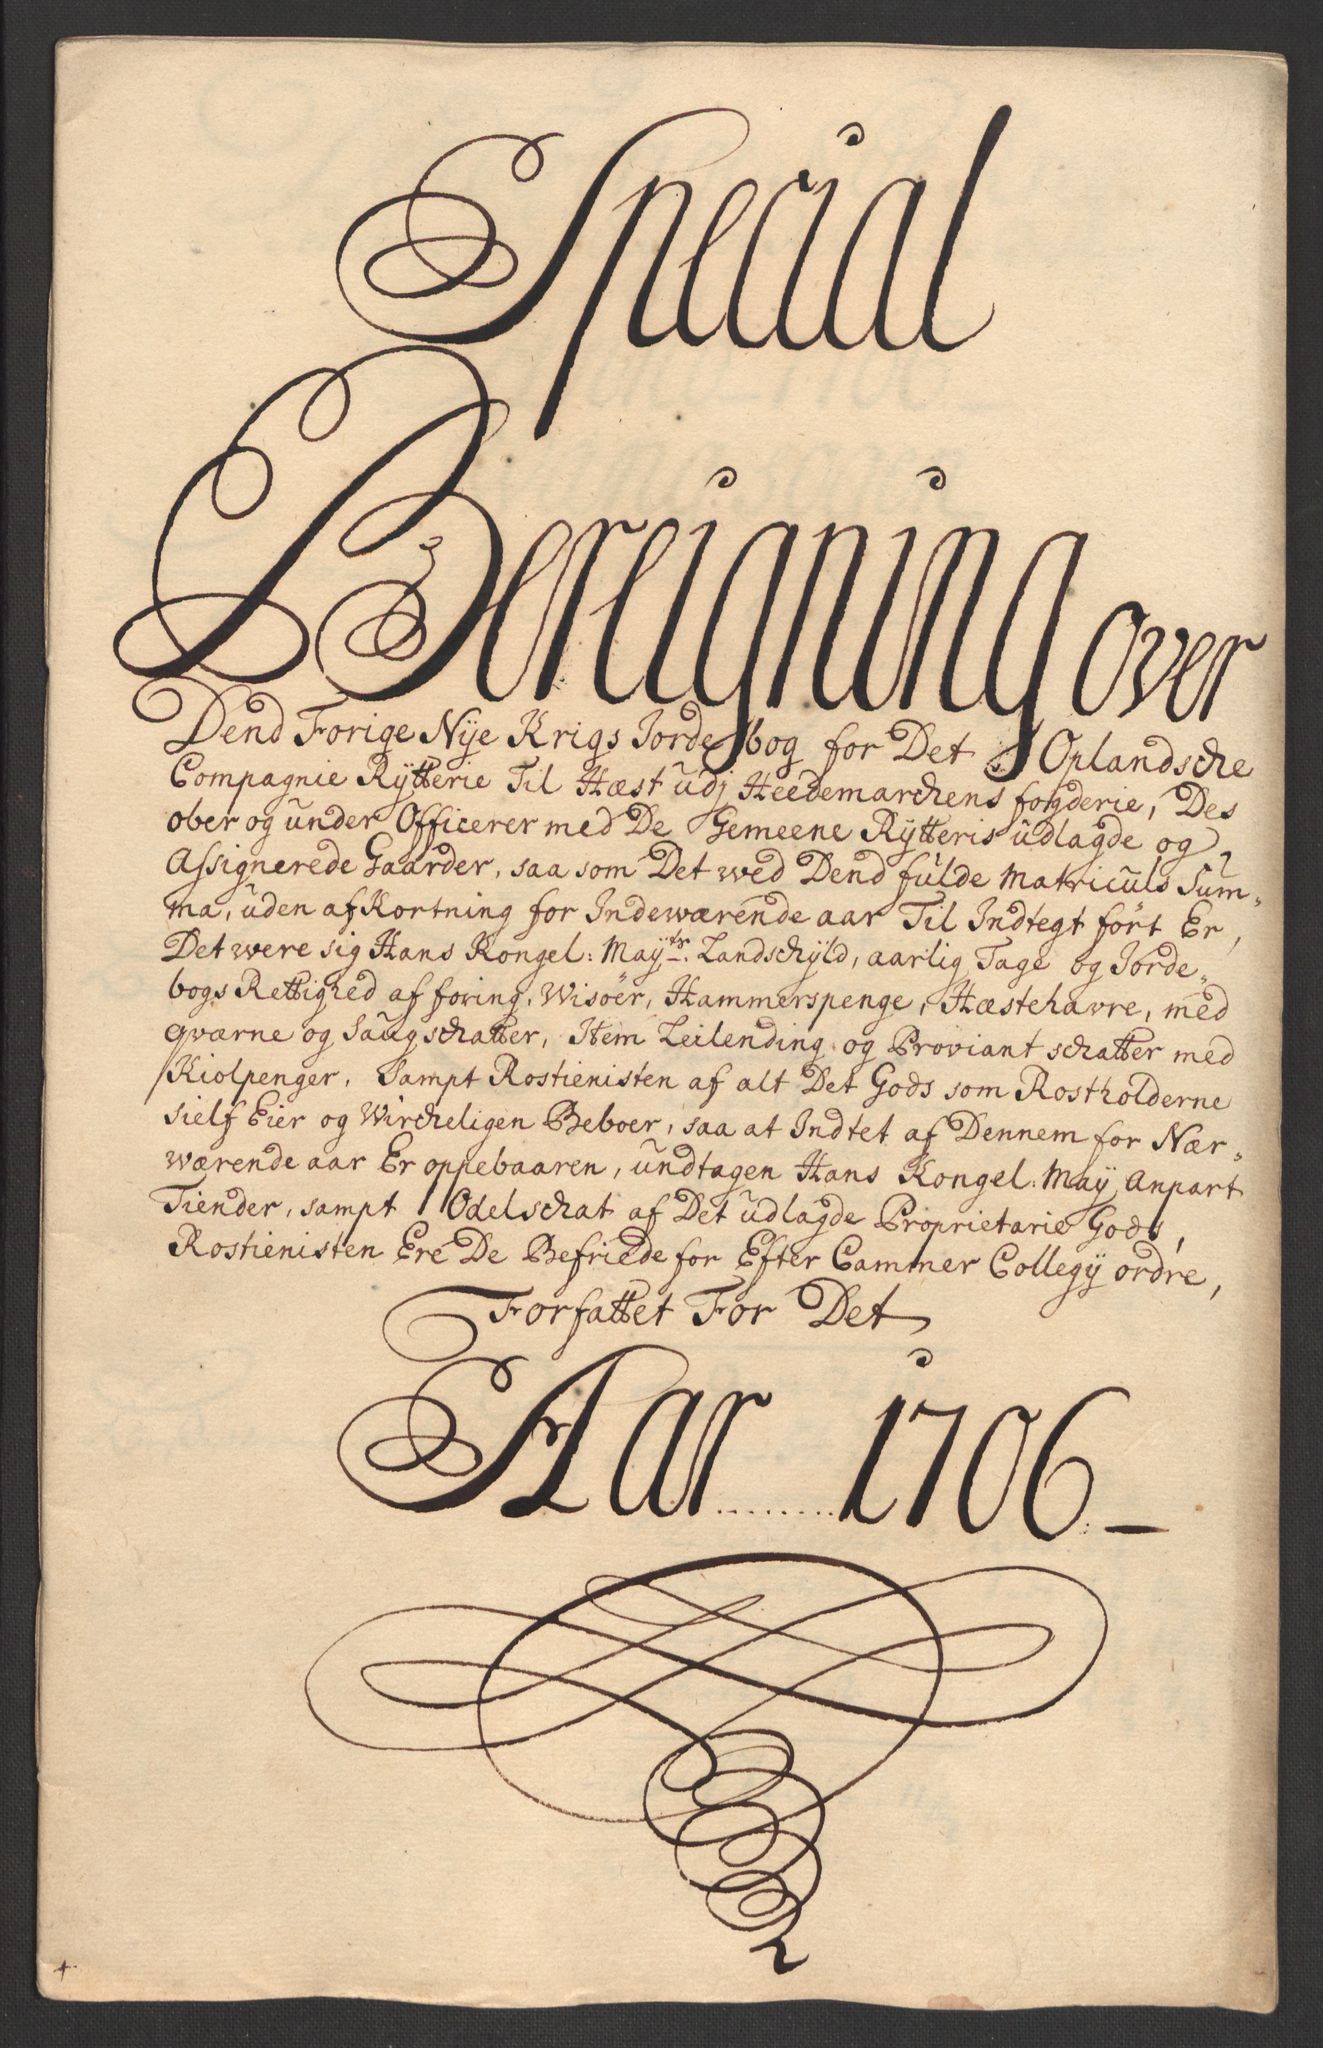 Special
Bereigning over
Dend Forige Nÿe Krigs Jordebog for Det Oplandsche
Compagnie Rÿtterie Til Hæst udj Heedemarchens fogderie, Des
ober og under Officerer med De Gemeene Rÿtteris udlagde og
Assignerede Gaarder, saa som Det wed Dend fulde Matriculs Sum-
ma, uden afKortning for Indewærende aar Til Indtegt ført Er,
Det were sig Hans Kongel: Maytr. Landschÿld, aarlig Tage og Jorde-
bogs Rettighed af foring, Wisöer, Hammerspenge, Hæstehavre, med
qværne og Saugschatter, Item Leilending og Proviant schatter med
Kiolpenger, Sampt Rostienisten af alt Det Gods som Rostholderne
sielf Eier og Wircheligen Beboer, saa at Indtet af Dennem for Nær-
wærende aar Er oppebaaren, undtagen Hans Kongel: Maÿ Anpart
Tiender, sampt Odelschat af Det udlagde Proprietarie Gods,
Rostienisten Ere De Befriede for Efter Cammer Collegÿ ordre,
Forfattet For Det
Aar ........ 1706 —